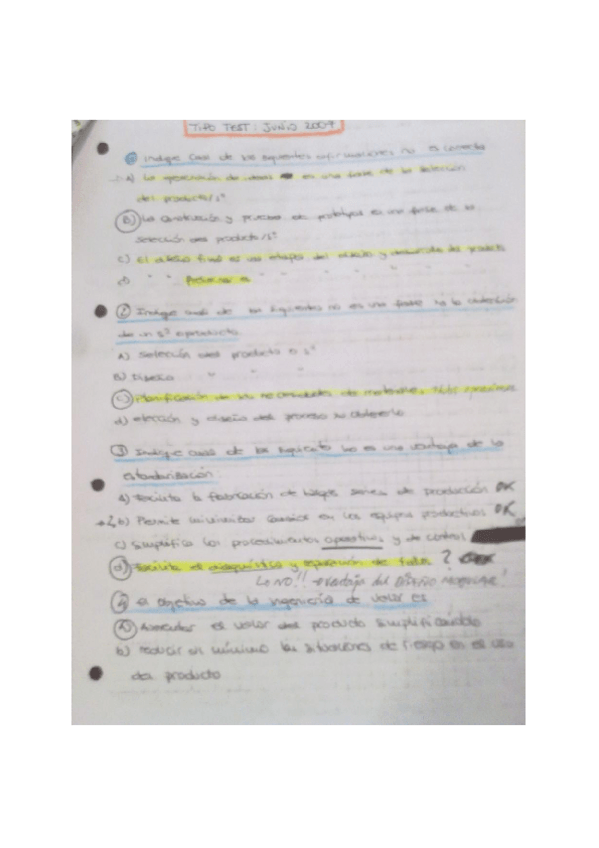 TIPO TEST: JUNIO 2007
① Indique cual de las siguientes afirmaciones no es correcta
A) La generación de ideas es una fase de la selección
del producto/sº
B) La construcción y pruebas de prototipos es una fase de la
selección del producto/sº
c) El diseño final es una etapa del diseño y desarrollo del producto
d) " " " preliminar es " " " "
② Indique cual de las siguientes no es una fase de la obtención
de un sº o producto
A) Selección del producto o sº
B) Diseño " " "
c) Planificación de las necesidades de materiales
d) elección y diseño del proceso
③ Indique cual de las siguientes no es una ventaja de la
estandarización
A) Facilita la fabricación de largas series de producción OK
b) Permite minimizar cambios en los equipos productivos OK
c) Simplifica los procedimientos operativos y de control
d) Facilita el diagnóstico y reparación de fallos ?
Lo NO!! → Ventaja del DISEÑO MODULAR!
④ el objetivo de la ingeniería de valor es
A) Aumentar el valor del producto simplificándolo
b) reducir al mínimo las situaciones de riesgo en el uso
del producto